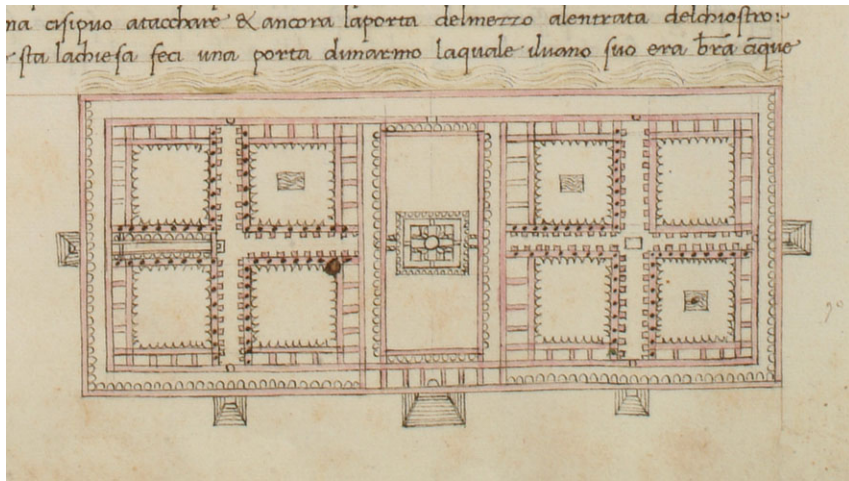 na cisipuo atacchare & ancora laporta delmezzo alentrata delchiostro:~
sta lachiesa feci una porta dimarmo laquale iluano suo era br̄a cīque